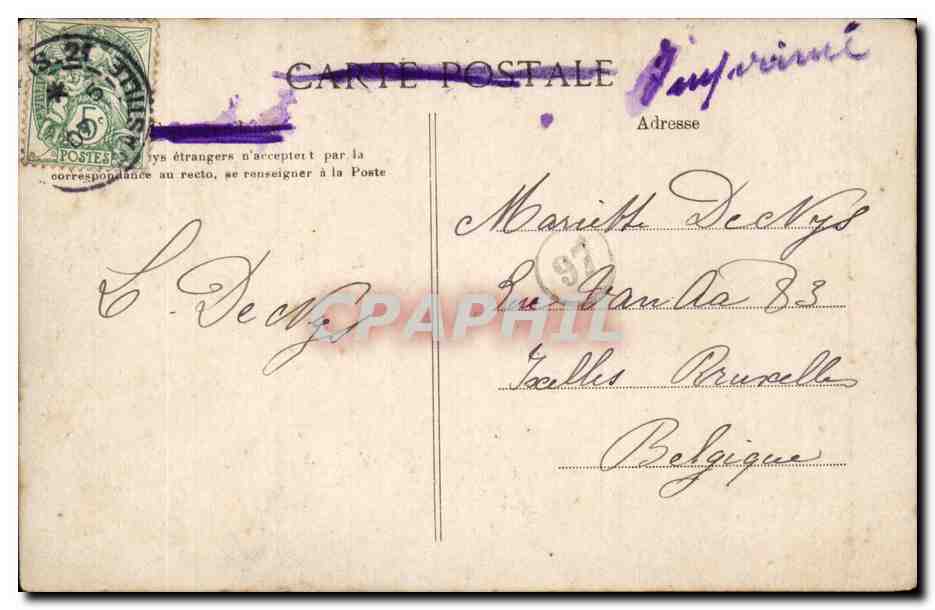 CARTE POSTALE
Imprimé
Adresse
ys étrangers n'acceptent par la
correspondance au recto, se renseigner à la Poste
5c
POSTES
21
09
97
Mariette De Nys
Rue Van Aa 83
Ixelles Bruxelles
Belgique
L. De Nys
CPAPHIL